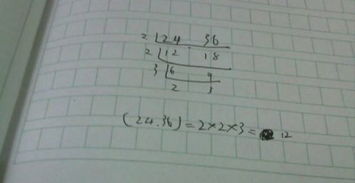 2 24 36
2 12 18
3 6 9
2 3
(24.36)=2×2×3= 12